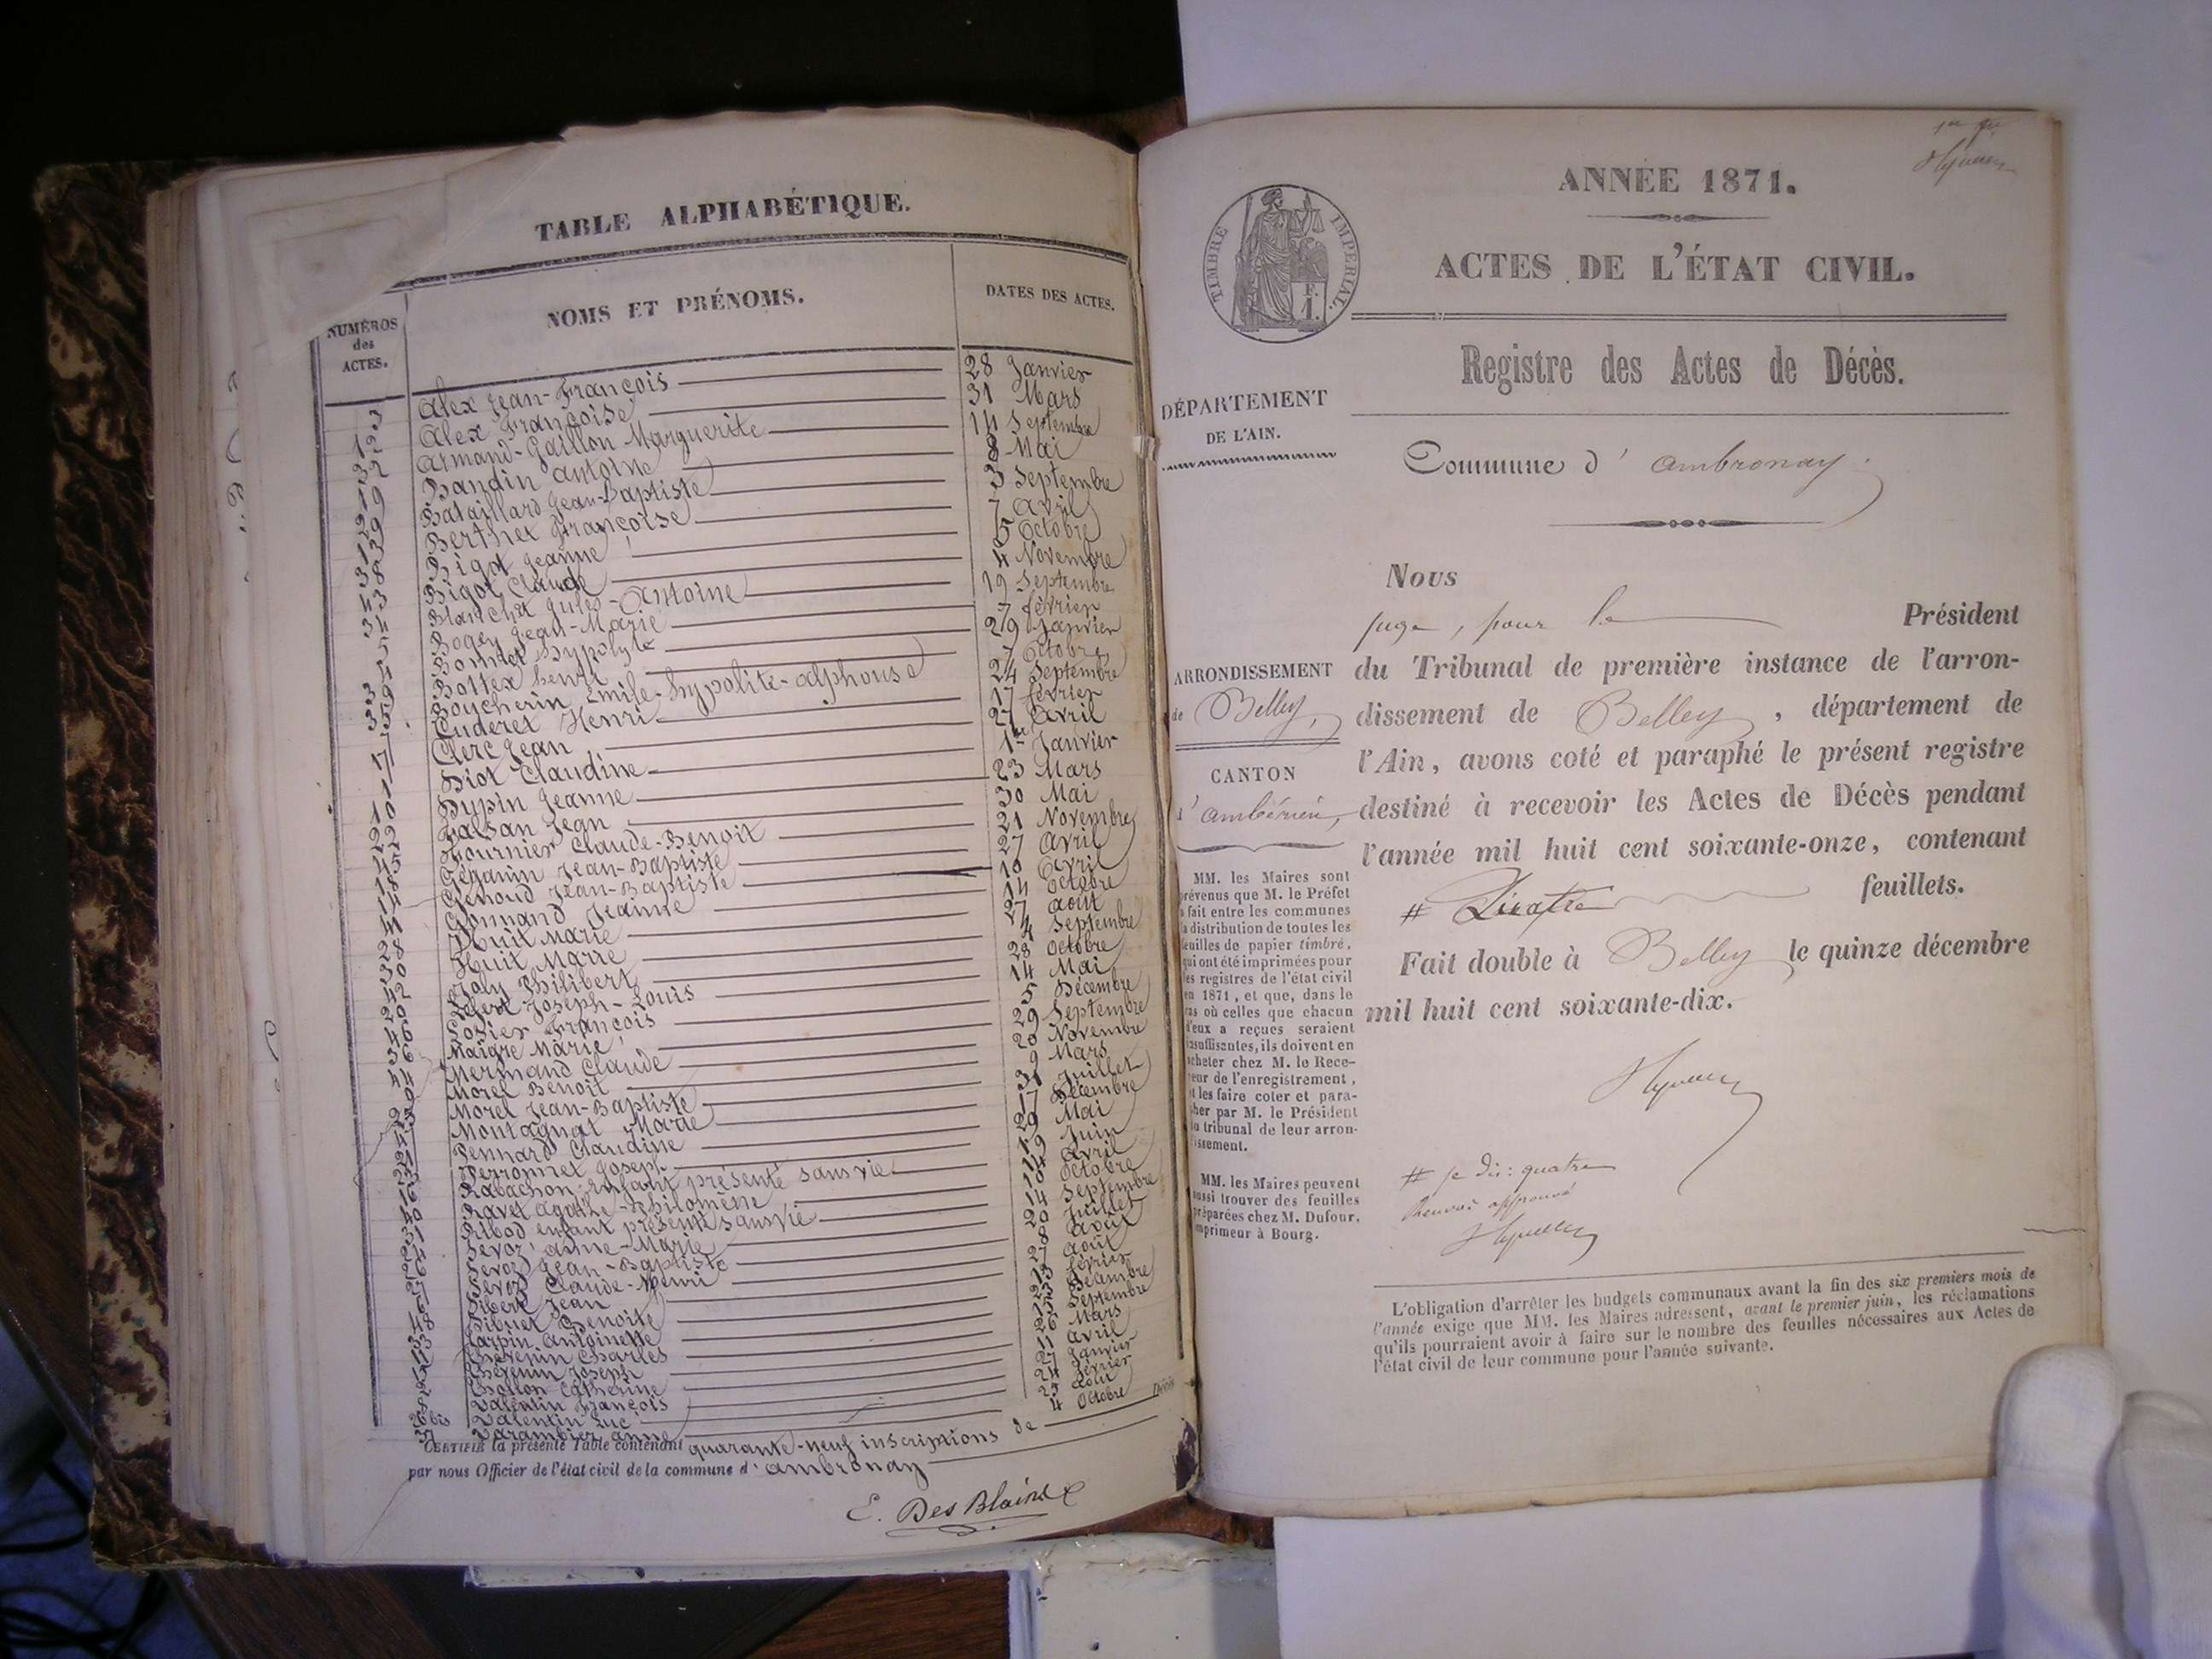 TABLE ALPHABÉTIQUE.
NUMÉROS des ACTES.
NOMS ET PRÉNOMS.
DATES DES ACTES.
3 Alex Jean-François 28 Janvier
12 Alex Françoise 31 Mars
32 Armand-Gaillon Marguerite 14 Septembre
19 Bandin Antoine 8 Mai
29 Bataillard Jean-Baptiste 3 Septembre
13 Berthet Françoise 7 Avril
39 Bigot Jeanne 5 Octobre
43 Bigot Claude 4 Novembre
34 Blanchet Jules-Antoine 19 Septembre
5 Bogey Jean-Marie 7 février
4 Bonnet Hypolyte 29 Janvier
Bottex henri 7 Octobre
Boucherin Emile-hypolite-alphonse 24 Septembre
Cuderet Henri 17 février
17 Clerc Jean 27 Avril
1 Diot Claudine 1er Janvier
10 Dupin Jeanne 23 Mars
22 Jean 30 Mai
Fournier Claude-Benoit 21 Novembre
Jean-Baptiste 27 Avril
Genoud Jean-Baptiste 10 Avril
Gonnand Jeanne 14 Octobre
28 Huit Marie 27 août
30 Huit Marie 4 Septembre
42 Joly Philibert 28 Octobre
20 Joseph-Louis 14 Mai
François 5 Décembre
36 Maigre Marie 29 Septembre
Mermand Claude 20 Novembre
9 Morel Benoit 9 Mars
Morel Jean-Baptiste 31 Juillet
Montagnat Marie 17 Décembre
Pennard Claudine 29 Mai
Perronnet Joseph 19 Juin
Rabachon enfant présenté sans vie Avril
Ravet agathe-Philomène Octobre
Ribod enfant présenté sans vie 14 Septembre
Sevoz anne-Marie 20 Juillet
Sevoz Jean-Baptiste 8 août
27 Sevoz Claude-Henri 27 août
Sibert Jean février
Benoite Décembre
Tarpin Antoinette Septembre
Thévenin Charles 26 Mars
Thévenin Joseph 11 avril
Thollon Catherine 27 Janvier
8 Valentin François 24 février
26 bis Valentin Luc 25 août
37 Varambier anne 4 Octobre
CERTIFIÉ la présente Table contenant quarante-neuf inscriptions de Décès
par nous Officier de l'état civil de la commune d'ambronay
E. Des Blains
ANNÉE 1871.
TIMBRE IMPÉRIAL.
F. 1.
ACTES DE L'ÉTAT CIVIL.
Registre des Actes de Décès.
DÉPARTEMENT
DE L'AIN.
Commune d'ambronay.
ARRONDISSEMENT
de Belley,
CANTON
d'ambérieu,
MM. les Maires sont
prévenus que M. le Préfet
a fait entre les communes
la distribution de toutes les
feuilles de papier timbré,
qui ont été imprimées pour
les registres de l'état civil
en 1871, et que, dans le
cas où celles que chacun
d'eux a reçues seraient
insuffisantes, ils doivent en
acheter chez M. le Rece-
veur de l'enregistrement,
et les faire coter et para-
pher par M. le Président
du tribunal de leur arron-
dissement.
MM. les Maires peuvent
aussi trouver des feuilles
préparées chez M. Dufour,
imprimeur à Bourg.
Nous
juge, pour le Président
du Tribunal de première instance de l'arron-
dissement de Belley, département de
l'Ain, avons coté et paraphé le présent registre
destiné à recevoir les Actes de Décès pendant
l'année mil huit cent soixante-onze, contenant
# Quatre feuillets.
Fait double à Belley le quinze décembre
mil huit cent soixante-dix.
# je dis: quatre
Renvoi approuvé
L'obligation d'arrêter les budgets communaux avant la fin des six premiers mois de
l'année exige que MM. les Maires adressent, avant le premier juin, les réclamations
qu'ils pourraient avoir à faire sur le nombre des feuilles nécessaires aux Actes de
l'état civil de leur commune pour l'année suivante.